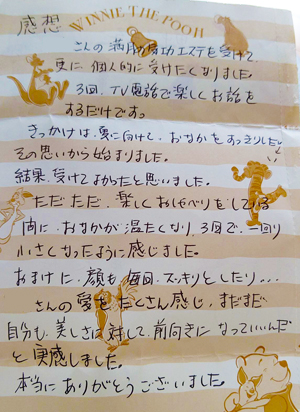 感想
WINNIE THE POOH
さんの満月の気功エステを受けて、
更に、個人的に受けたくなりました。
3回、TV電話で楽しくお話を
するだけです。
きっかけは、夏に向けて、おなかをすっきりしたい
その思いから始まりました。
結果、受けてよかったと思いました。
ただただ、楽しくおしゃべりをしている
間に、おなかが温たくなり、3回で、一回り
小さくなったように感じました。
おまけに、顔も毎回、スッキリとしたり...
さんの愛をたくさん感じ、まだまだ
自分も、美しさに対して、前向きになっていいんだ
と実感しました。
本当にありがとうございました。